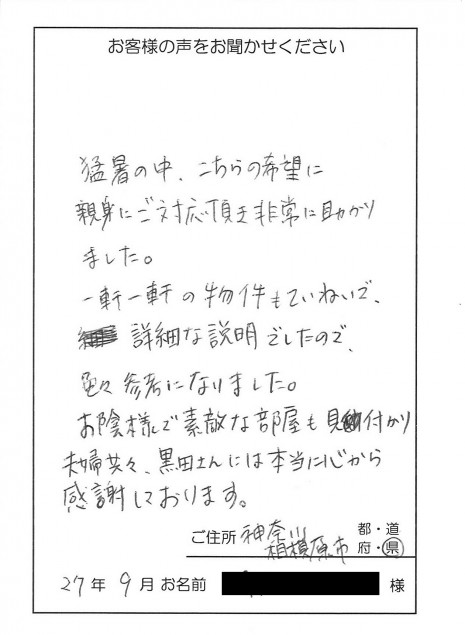 お客様の声をお聞かせください
猛暑の中、こちらの希望に
親身にご対応頂き非常に助かり
ました。
一軒一軒の物件もていねいで、
詳細な説明でしたので、
色々参考になりました。
お陰様で素敵な部屋も見付かり
夫婦共々、黒田さんには本当に心から
感謝しております。
ご住所 神奈川 都・道
相模原市 府・県
27年 9月 お名前 様